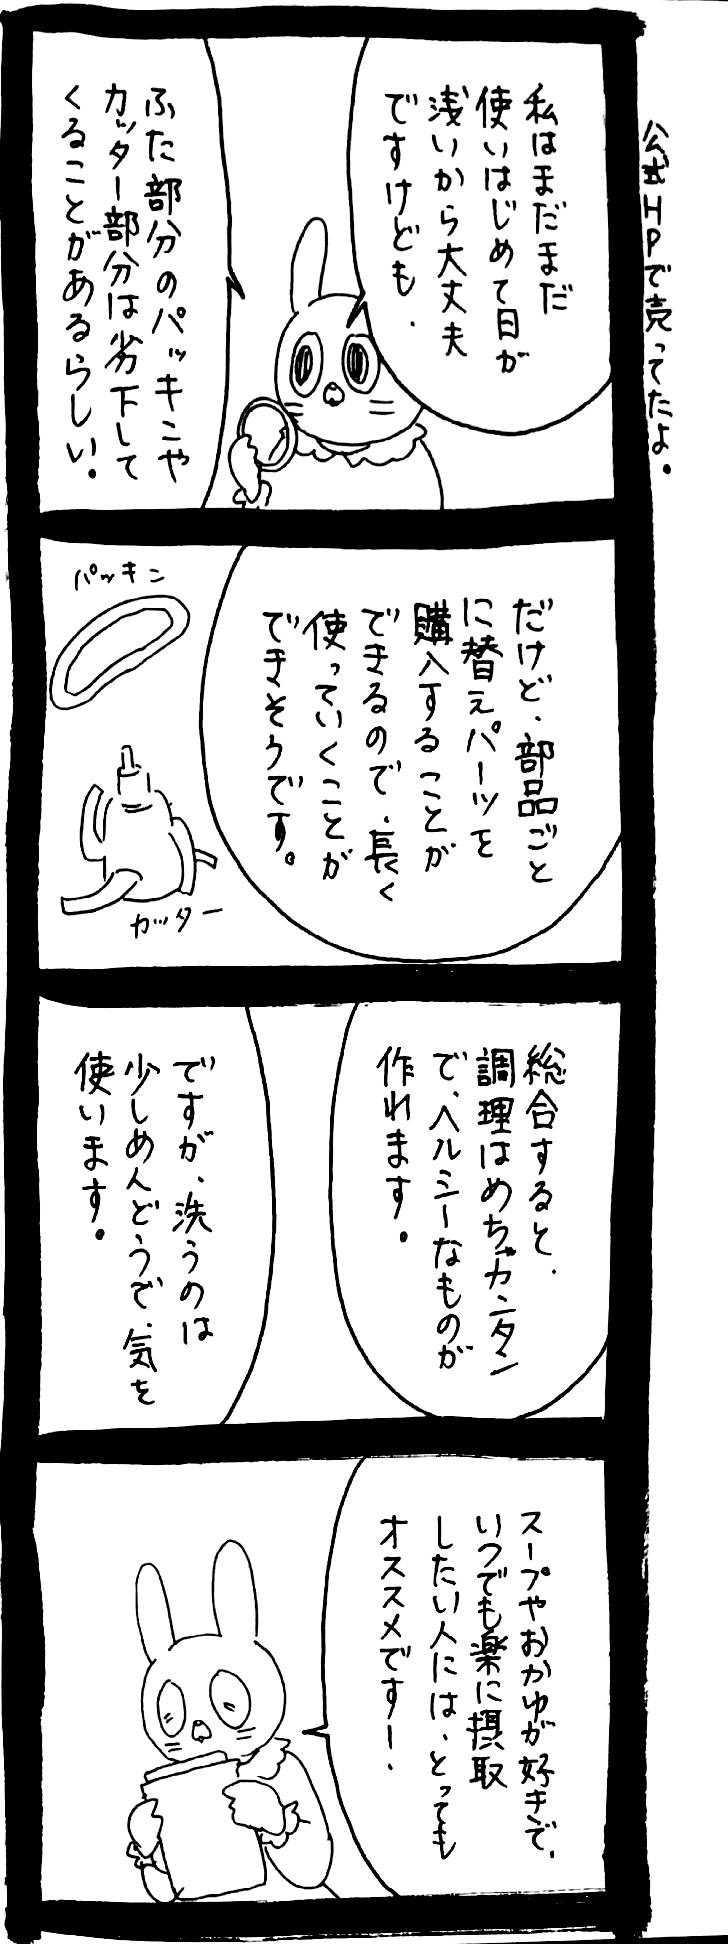 公式HPで売ってたよ。
私はまだまだ
使いはじめて日が
浅いから大丈夫
ですけども、
ふた部分のパッキンや
カッター部分は劣下して
くることがあるらしい。
だけど、部品ごと
に替えパーツを
購入することが
できるので、長く
使っていくことが
できそうです。
パッキン
カッター
総合すると、
調理はめちゃカンタン
で、ヘルシーなものが
作れます。
ですが、洗うのは
少しめんどうで、気を
使います。
スープやおかゆが好きで、
いつでも楽に摂取
したい人には、とっても
オススメですー、